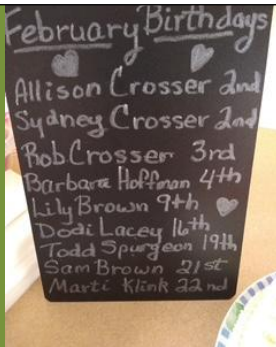 February Birthdays
Allison Crosser 2nd
Sydney Crosser 2nd
Rob Crosser 3rd
Barbara Hoffman 4th
Lily Brown 9th
Dodi Lacey 16th
Todd Spurgeon 19th
Sam Brown 21st
Marti Klink 22nd